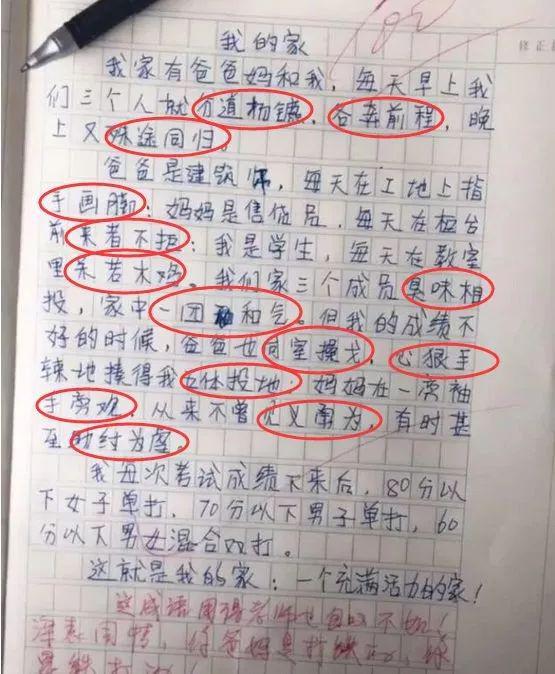 修正
我的家
我家有爸爸妈和我，每天早上我
们三个人就分道扬镳，各奔前程，晚
上又殊途同归。
爸爸是建筑师，每天在工地上指
手画脚；妈妈是售货员，每天在柜台
前来者不拒；我是学生，每天在教室
里呆若木鸡。我们家三个成员臭味相
投，家中一团和气。但我的成绩不
好的时候，爸爸也同室操戈，心狠手
辣地揍得我五体投地。妈妈在一旁袖
手旁观，从来不曾见义勇为，有时甚
至助纣为虐。
我每次考试成绩下来后，80分以
下女子单打，70分以下男子单打，60
分以下男女混合双打。
这就是我的家：一个充满活力的家！
这成语用得老师也自叹不如！
深表同情，你爸妈是打铁的，你
是铁打的！